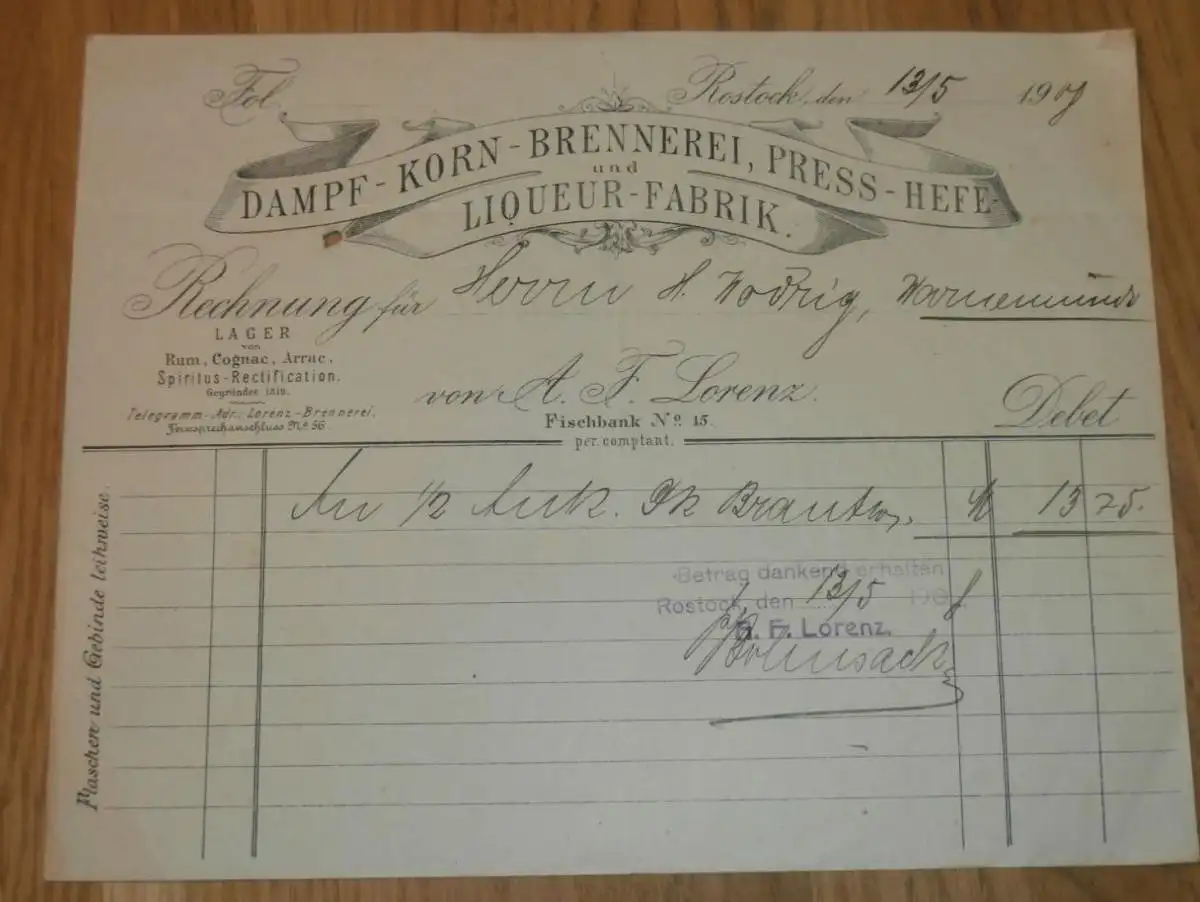 Fol.
Rostock, den 13/5 190
DAMPF-KORN-BRENNEREI, PRESS-HEFE-
und
LIQUEUR-FABRIK.
Rechnung für Herrn H. Wodrig, Warnemünde
LAGER
von
Rum, Cognac, Arrac,
Spiritus-Rectification.
Gegründet 1819.
Telegramm-Adr.: Lorenz-Brennerei.
Fernsprechanschluss No 56.
von A. F. Lorenz.
Fischbank No. 15.
per comptant.
Debet
An 1/2 Ank. Brantw. M 13 25.
Betrag dankend erhalten
Rostock, den 13/5 190
A. F. Lorenz.
Flaschen und Gebinde leihweise.